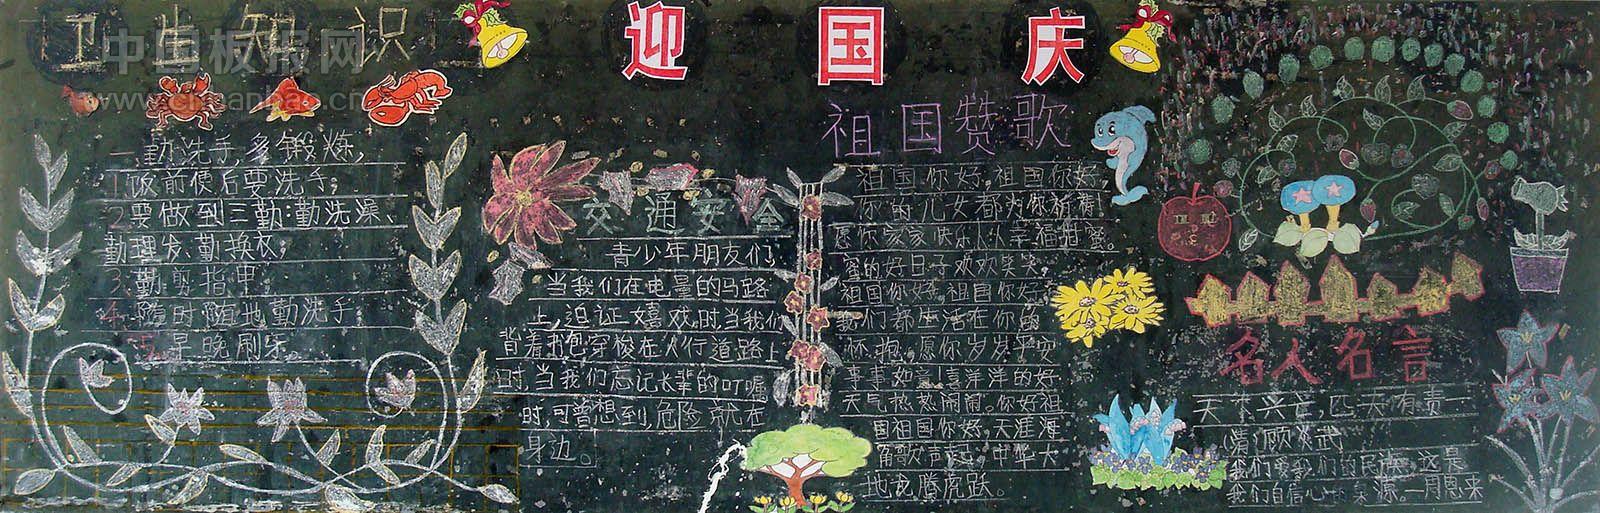 卫生知识
中国板报网
迎国庆
一、勤洗手,多锻炼,
1.饭前便后要洗手;
2.要做到三勤:勤洗澡、
勤理发、勤换衣;
3.勤剪指甲
4.随时随地勤洗手
5.早晚刷牙。
交通安全
青少年朋友们,
当我们在电量的马路
上,迫证嬉戏时,当我们
背着书包穿梭在人行道路上
时,当我们忘记长辈的叮嘱
时,可曾想到,危险就在
身边。
祖国赞歌
祖国你好,祖国你好,
你的儿女都为你祈祷
愿你家家快乐人人幸福甜蜜。
蜜的好日子欢欢笑笑。
祖国你好,祖国你好
我们都生活在你的
怀抱,愿你岁岁平安
事事如意喜洋洋的好
天气热热闹闹。你好祖
国祖国你好,天涯海
角歌声,中华大
地龙腾虎跃。
名人名言
天下兴亡,匹夫有责一
(清)顾炎武
我们爱我们的民族,这是
我们自信心的泉源。一周恩来